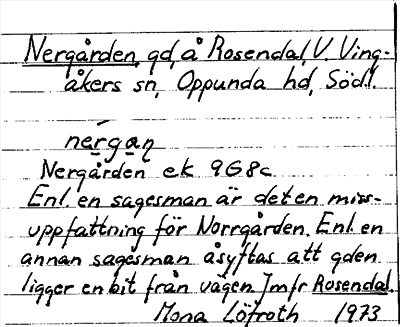 Nergården, gd, å Rosendal, V. Ving-
åkers sn, Oppunda hd, Södl.
nę́rgaņ
Nergården ek 9G8c
Enl. en sagesman är det en miss-
uppfattning för Norrgården. Enl. en
annan sagesman åsyftas att gden
ligger en bit från vägen. Jmfr Rosendal.
Mona Löfroth 1973